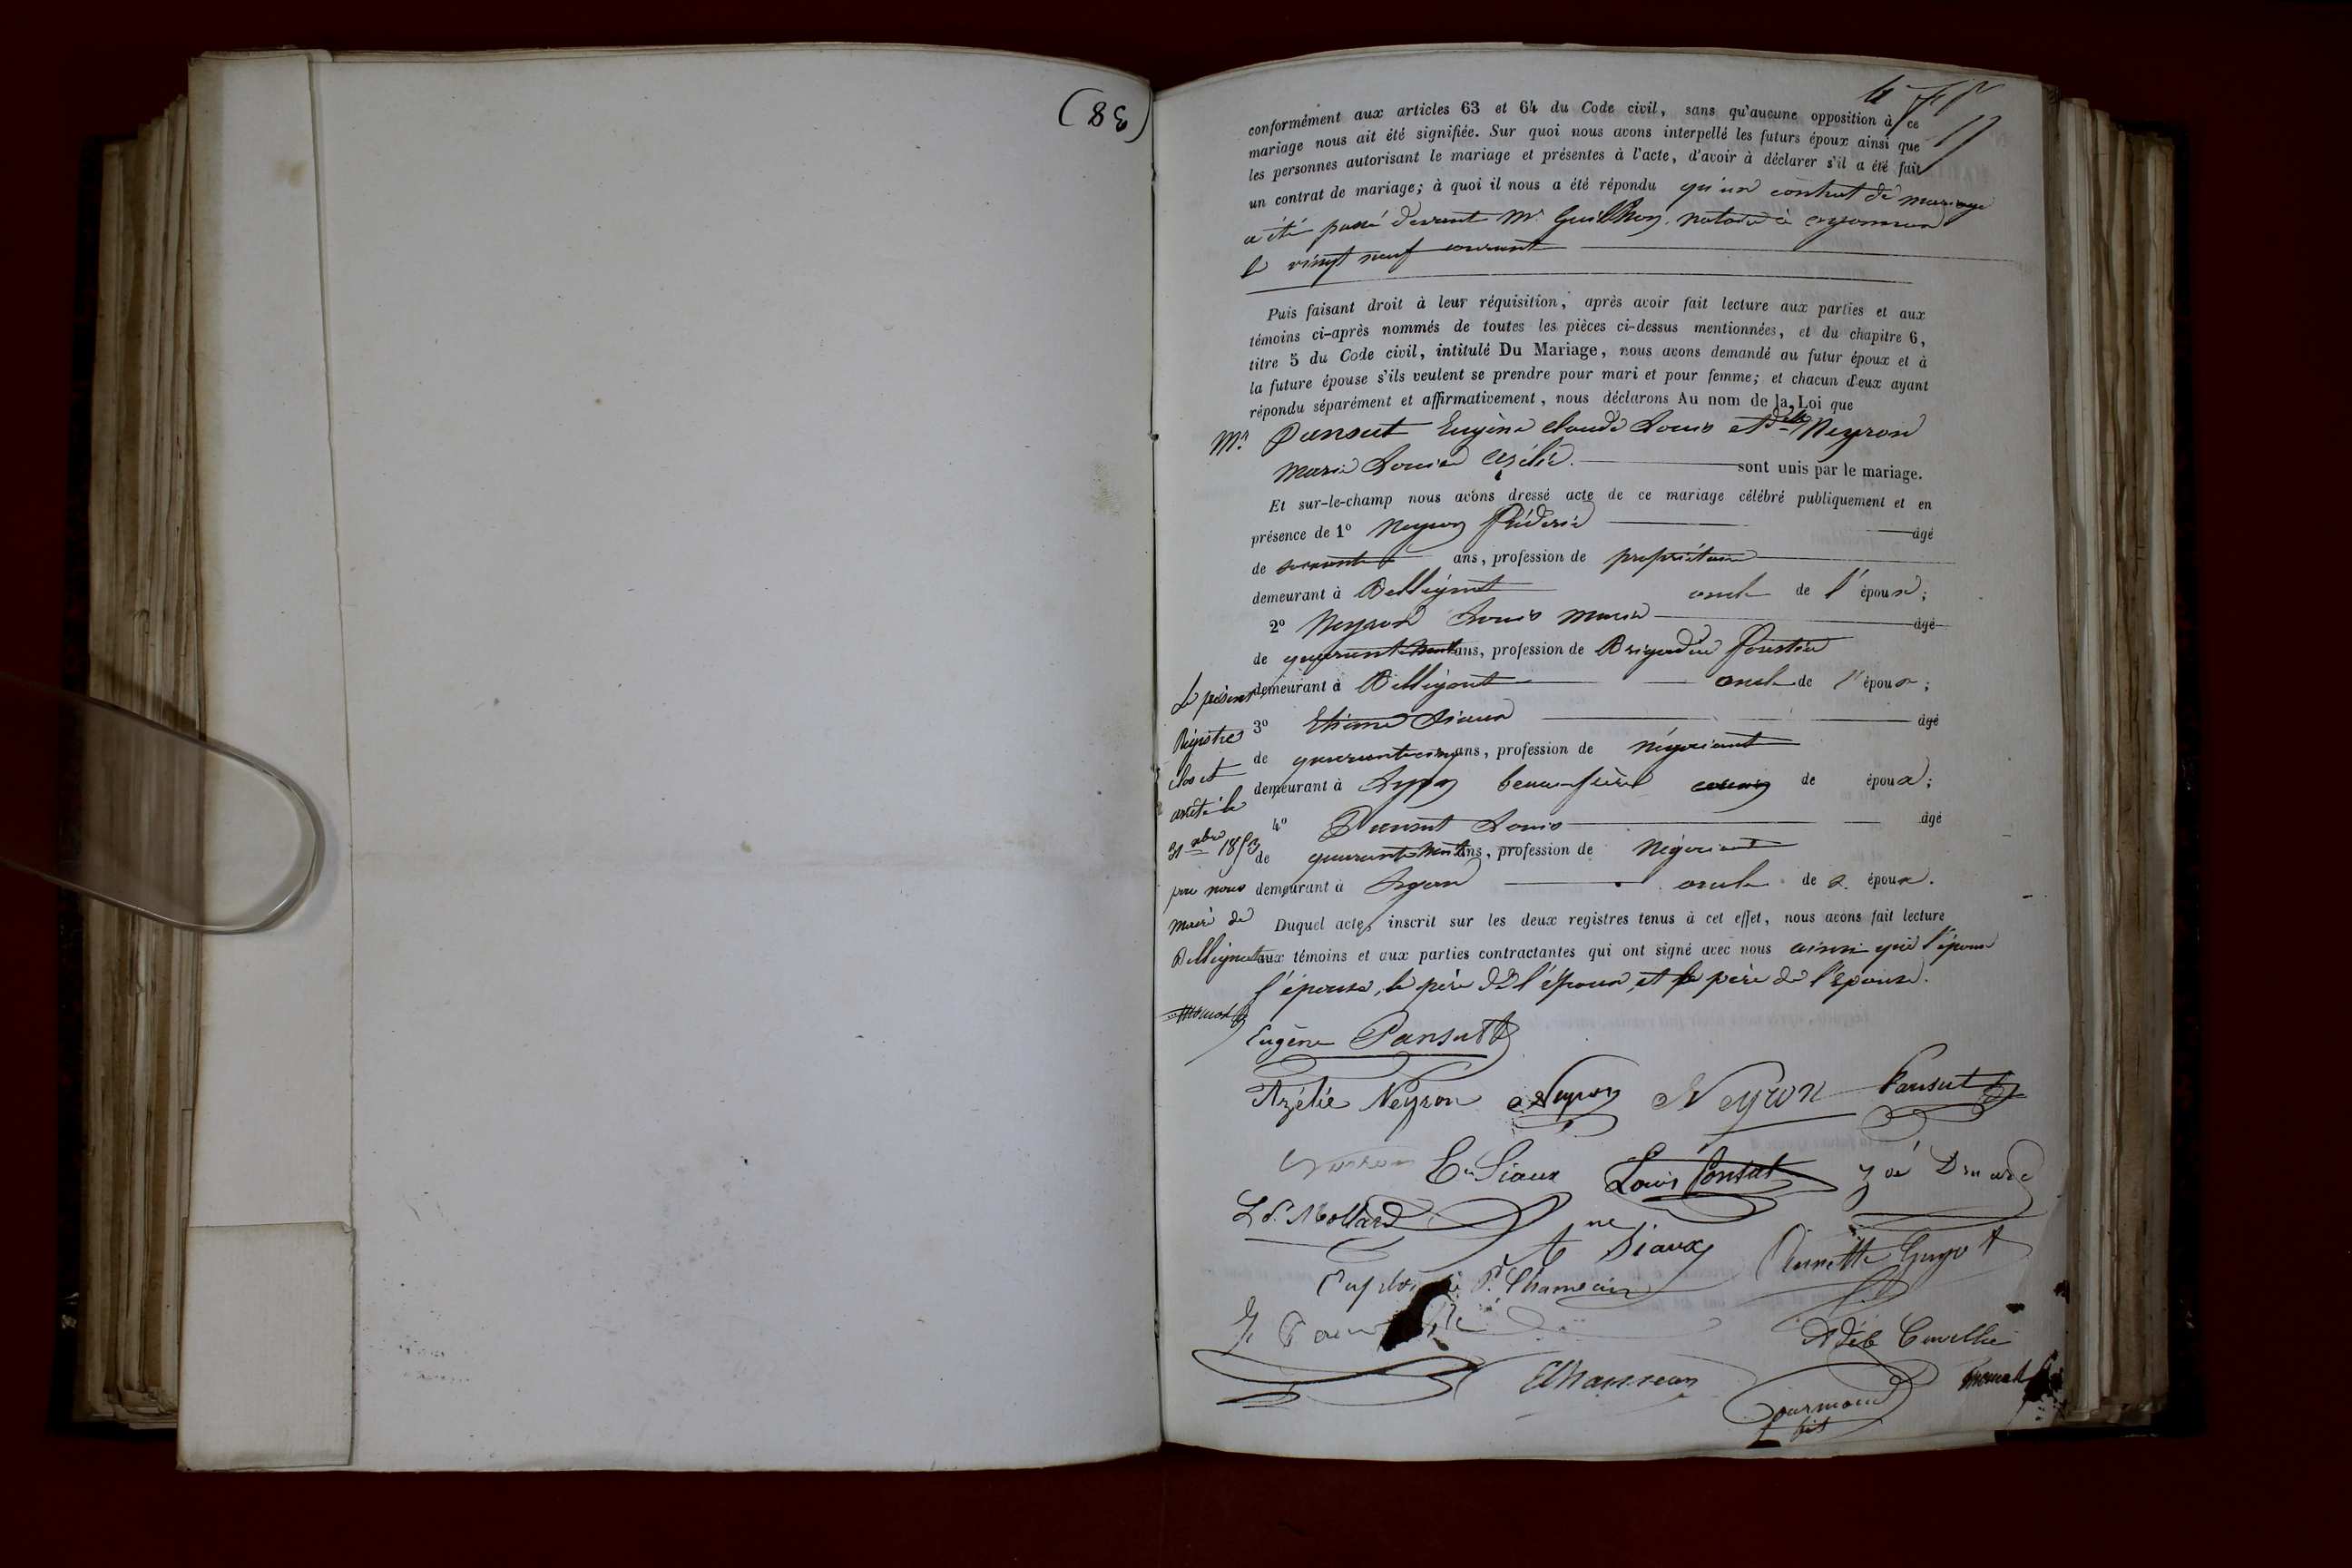 (38)
conformément aux articles 63 et 64 du Code civil, sans qu'aucune opposition à ce
mariage nous ait été signifiée. Sur quoi nous avons interpellé les futurs époux ainsi que
les personnes autorisant le mariage et présentes à l'acte, d'avoir à déclarer s'il a été fait
un contrat de mariage; à quoi il nous a été répondu qu'un contrat de mariage
a été passé devant Mr Guillhon notaire à oyonnax
le vingt neuf courant
Puis faisant droit à leur réquisition, après avoir fait lecture aux parties et aux
témoins ci-après nommés de toutes les pièces ci-dessus mentionnées, et du chapitre 6,
titre 5 du Code civil, intitulé Du Mariage, nous avons demandé au futur époux et à
la future épouse s'ils veulent se prendre pour mari et pour femme; et chacun d'eux ayant
répondu séparément et affirmativement, nous déclarons Au nom de la Loi que
Mr Pansut Eugène claude Louis et delle Neyron
Marie Louise Azélie sont unis par le mariage.
Et sur-le-champ nous avons dressé acte de ce mariage célébré publiquement et en
présence de 1º Neyron Fréderic âgé
de soixante ans, profession de propriétaire
demeurant à Bellignat oncle de l'épouse;
2º Neyron Louis Marie âgé
de quarante huit ans, profession de Brigadier forestier
demeurant à Bellignat oncle de l'épouse;
3º Etienne Siaux âgé
de quarante cinq ans, profession de négociant
demeurant à Lyon beau-frère de époux;
4º Pansut Louis âgé
de quarante huit ans, profession de Négociant
demeurant à Lyon oncle de époux.
Duquel acte, inscrit sur les deux registres tenus à cet effet, nous avons fait lecture
aux témoins et aux parties contractantes qui ont signé avec nous ainsi que l'époux
l'épouse, le père de l'époux, et le père de l'épouse.
Le présent
Registre
clos et
arrêté le
31 xbre 1853
par nous
maire de
Bellignat
Eugène Pansut
Azélie Neyron Neyron Neyron Pansut
En Siaux Louis Pansut
Ld. Mollard
ne Siaux
Annette Guyot
P. Chanvain
Gourmand
fils